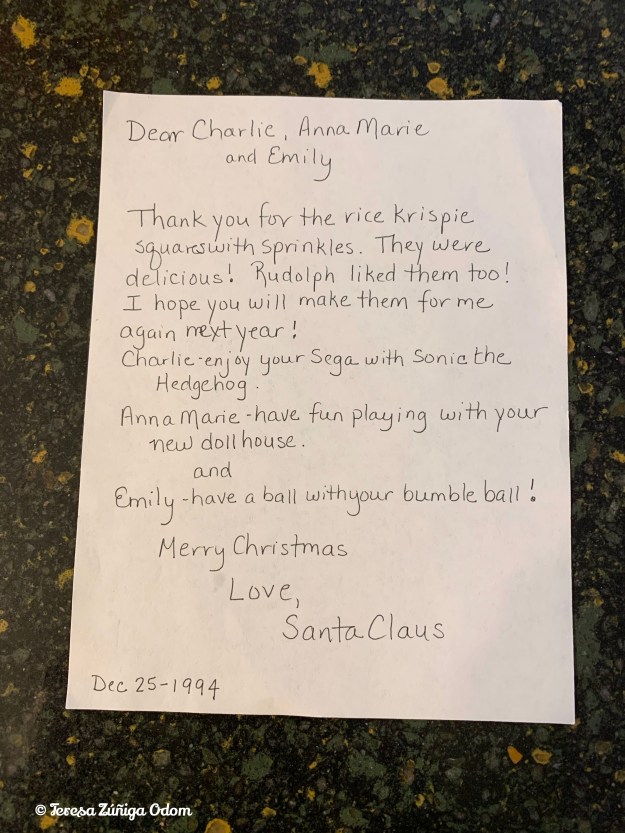 Dear Charlie, Anna Marie
and Emily
Thank you for the rice krispie
squares with sprinkles. They were
delicious! Rudolph liked them too!
I hope you will make them for me
again next year!
Charlie-enjoy your Sega with Sonic the
Hedgehog.
Anna Marie-have fun playing with your
new dollhouse.
and
Emily-have a ball with your bumble ball!
Merry Christmas
Love,
Santa Claus
Dec 25-1994
© Teresa Zúñiga Odom